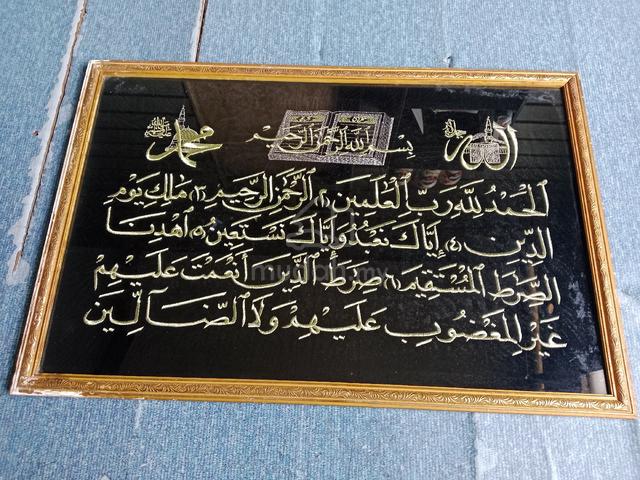 الله جل جلاله
بسم الله الرحمن الرحيم
محمد صلى الله عليه وسلم
الحمد لله رب العلمين (٢) الرحمن الرحيم (٣) ملك يوم
الدين (٤) إياك نعبد وإياك نستعين (٥) اهدنا
الصرط المستقيم (٦) صرط الذين أنعمت عليهم
غير المغضوب عليهم ولا الضالين